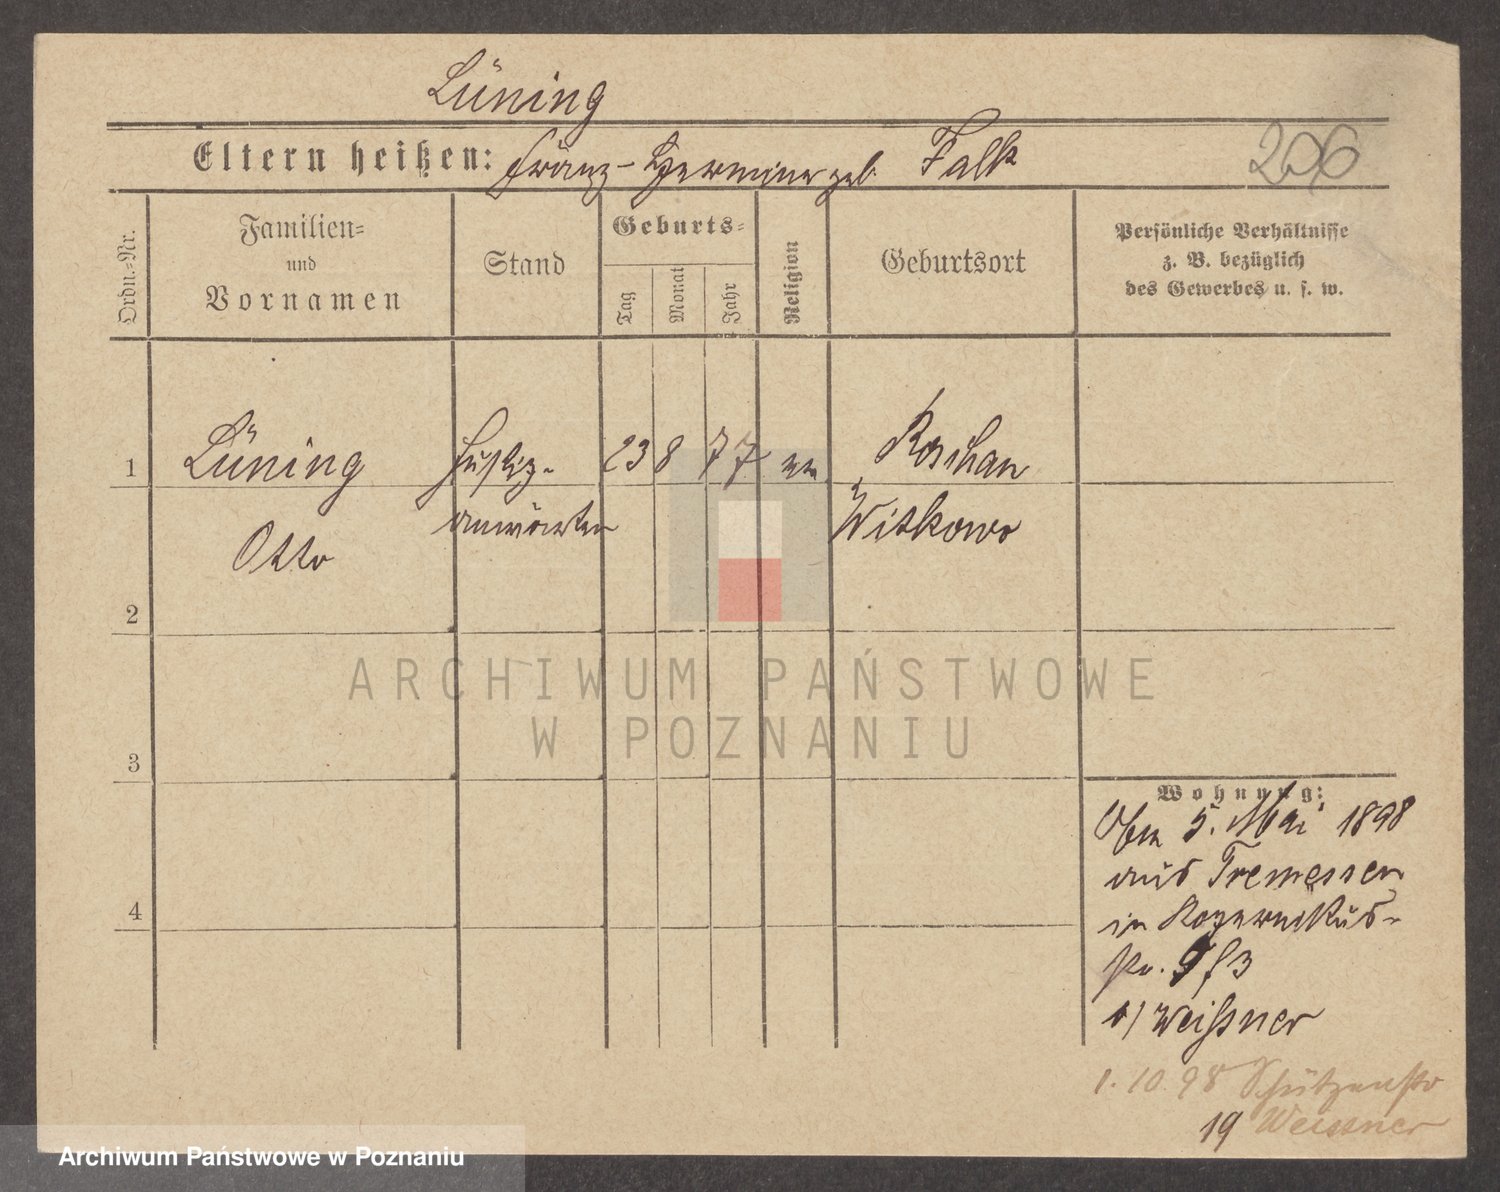 Lüning
Eltern heißen: Franz - Hermine geb. Falk
206
Ordn.=Nr.
Familien=
und
Vornamen
Stand
Geburts=
Tag
Monat
Jahr
Religion
Geburtsort
Persönliche Verhältnisse
z. B. bezüglich
des Gewerbes u. s. w.
1
Lüning
Justiz-
23 8 77 ev.
Roschau
anwärter
Witkowo
Otto
2
ARCHIWUM PAŃSTWOWE
W POZNANIU
3
Wohnung:
5. Mai 1898
aus Tremessen
in Kopernikus-
str. 9 f 3
b/ Weißner
4
1. 10. 98 Schützenstr
19 Weissner
Archiwum Państwowe w Poznaniu